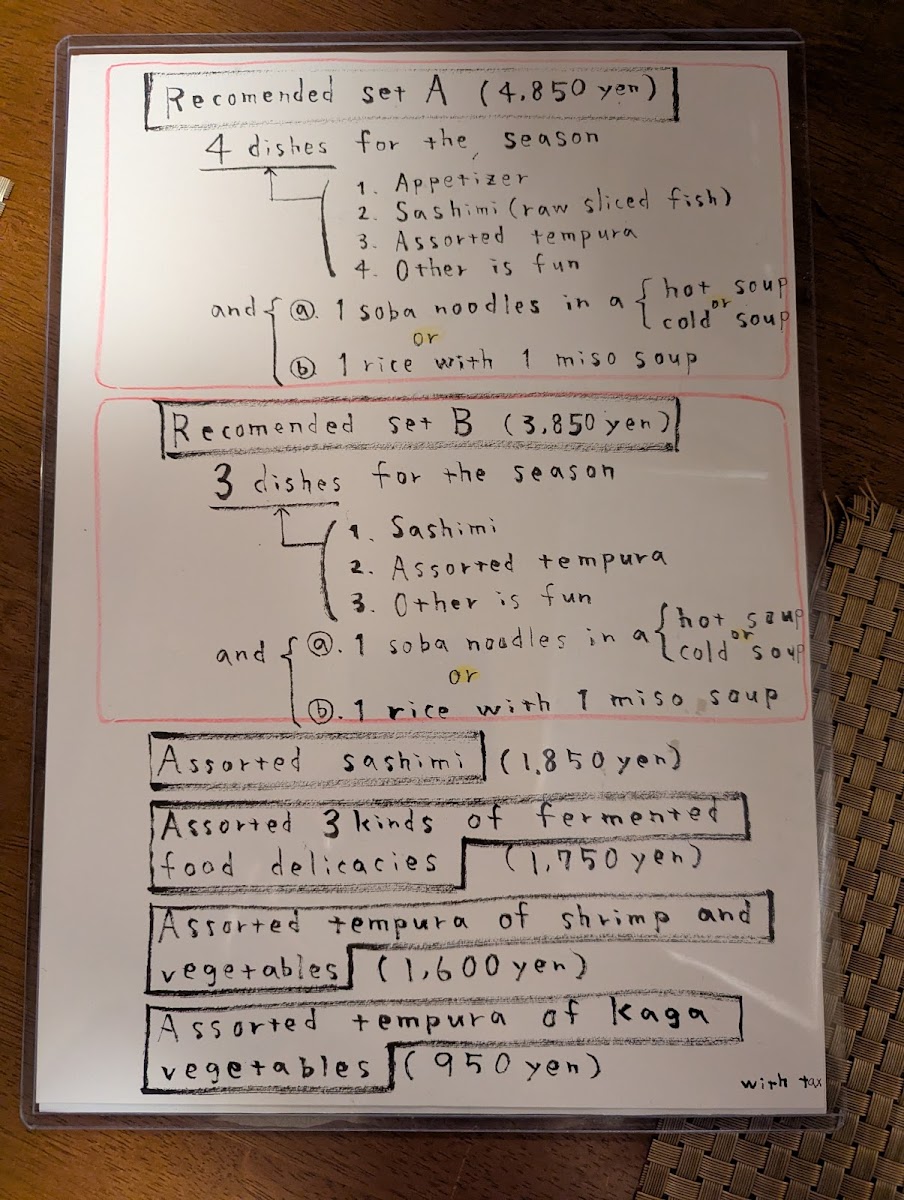 Recomended set A (4,850 yen)
4 dishes for the season
1. Appetizer
2. Sashimi (raw sliced fish)
3. Assorted tempura
4. Other is fun
and { ⓐ. 1 soba noodles in a { hot soup
or
cold soup
or
ⓑ 1 rice with 1 miso soup
Recomended set B (3,850 yen)
3 dishes for the season
1. Sashimi
2. Assorted tempura
3. Other is fun
and { ⓐ. 1 soba noodles in a { hot soup
or
cold soup
or
ⓑ. 1 rice with 1 miso soup
Assorted sashimi (1,850 yen)
Assorted 3 kinds of fermented
food delicacies (1,750 yen)
Assorted tempura of shrimp and
vegetables (1,600 yen)
Assorted tempura of kaga
vegetables (950 yen)
with tax